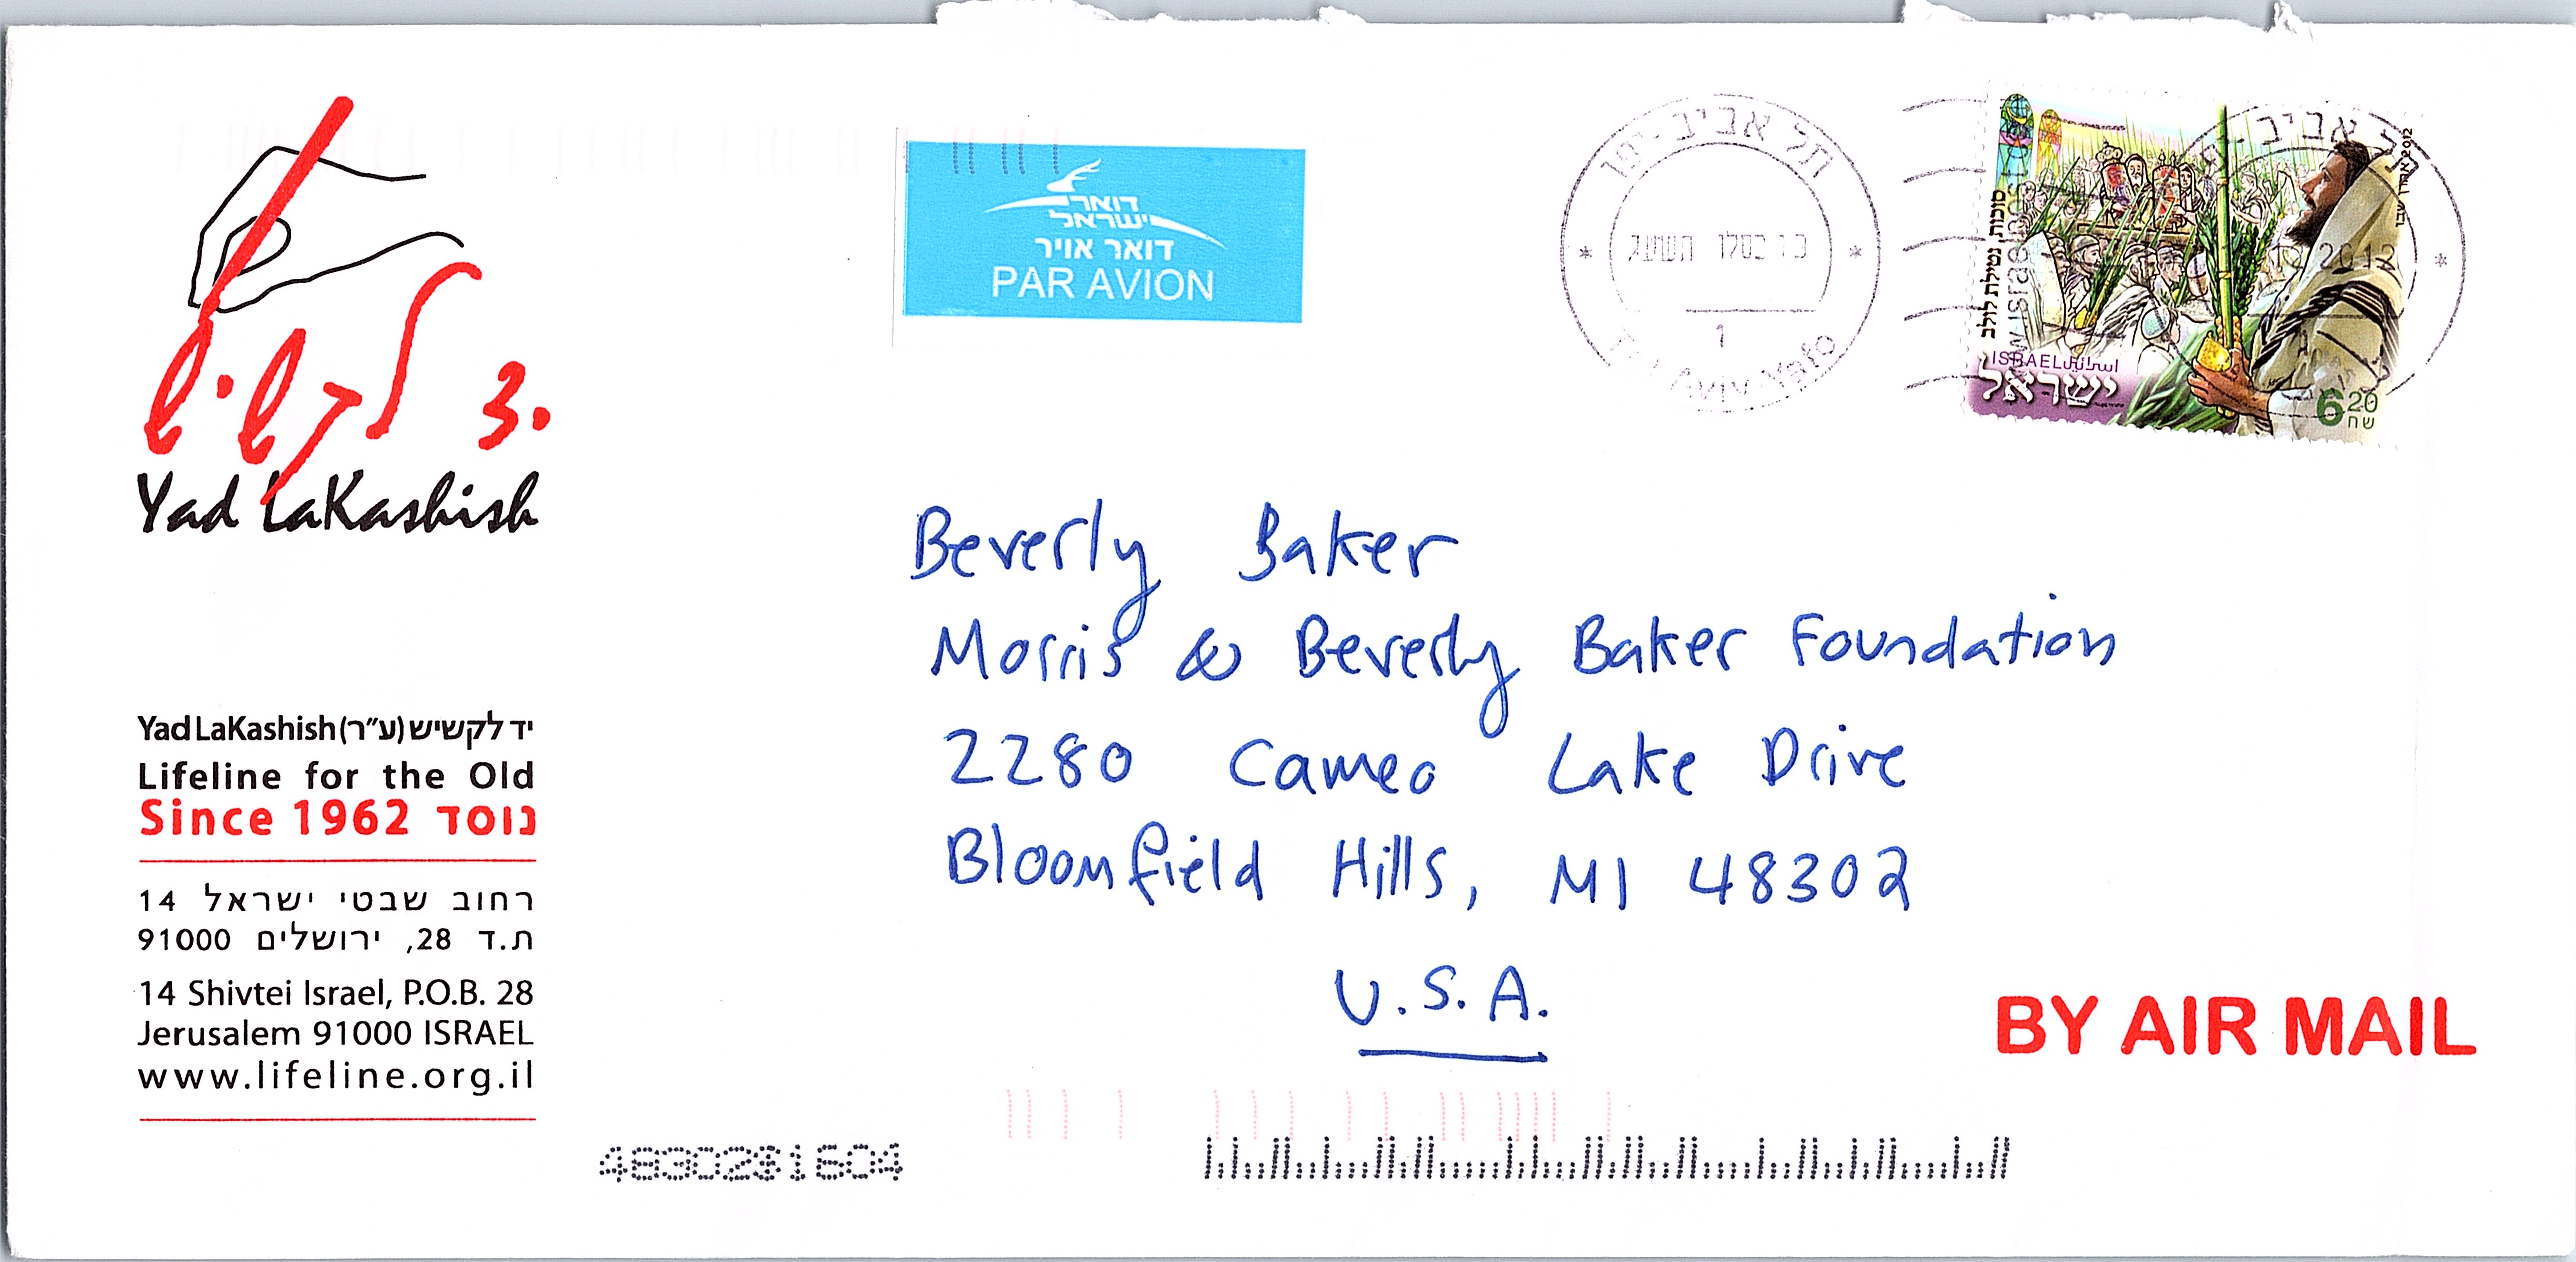 יד לקשיש
Yad LaKashish
Yad LaKashish (ע״ר) יד לקשיש
Lifeline for the Old
Since 1962 נוסד
רחוב שבטי ישראל 14
ת.ד 28, ירושלים 91000
14 Shivtei Israel, P.O.B. 28
Jerusalem 91000 ISRAEL
www.lifeline.org.il
דואר
ישראל
דואר אויר
PAR AVION
תל אביב-יפו
1
Tel Aviv-Yafo
תל אביב
2012
סוכות, נטילת לולב
ISRAEL اسرائيل
ישראל
6 20
שח
Beverly Baker
Morris & Beverly Baker Foundation
2280 Cameo Lake Drive
Bloomfield Hills, MI 48302
U.S.A.
BY AIR MAIL